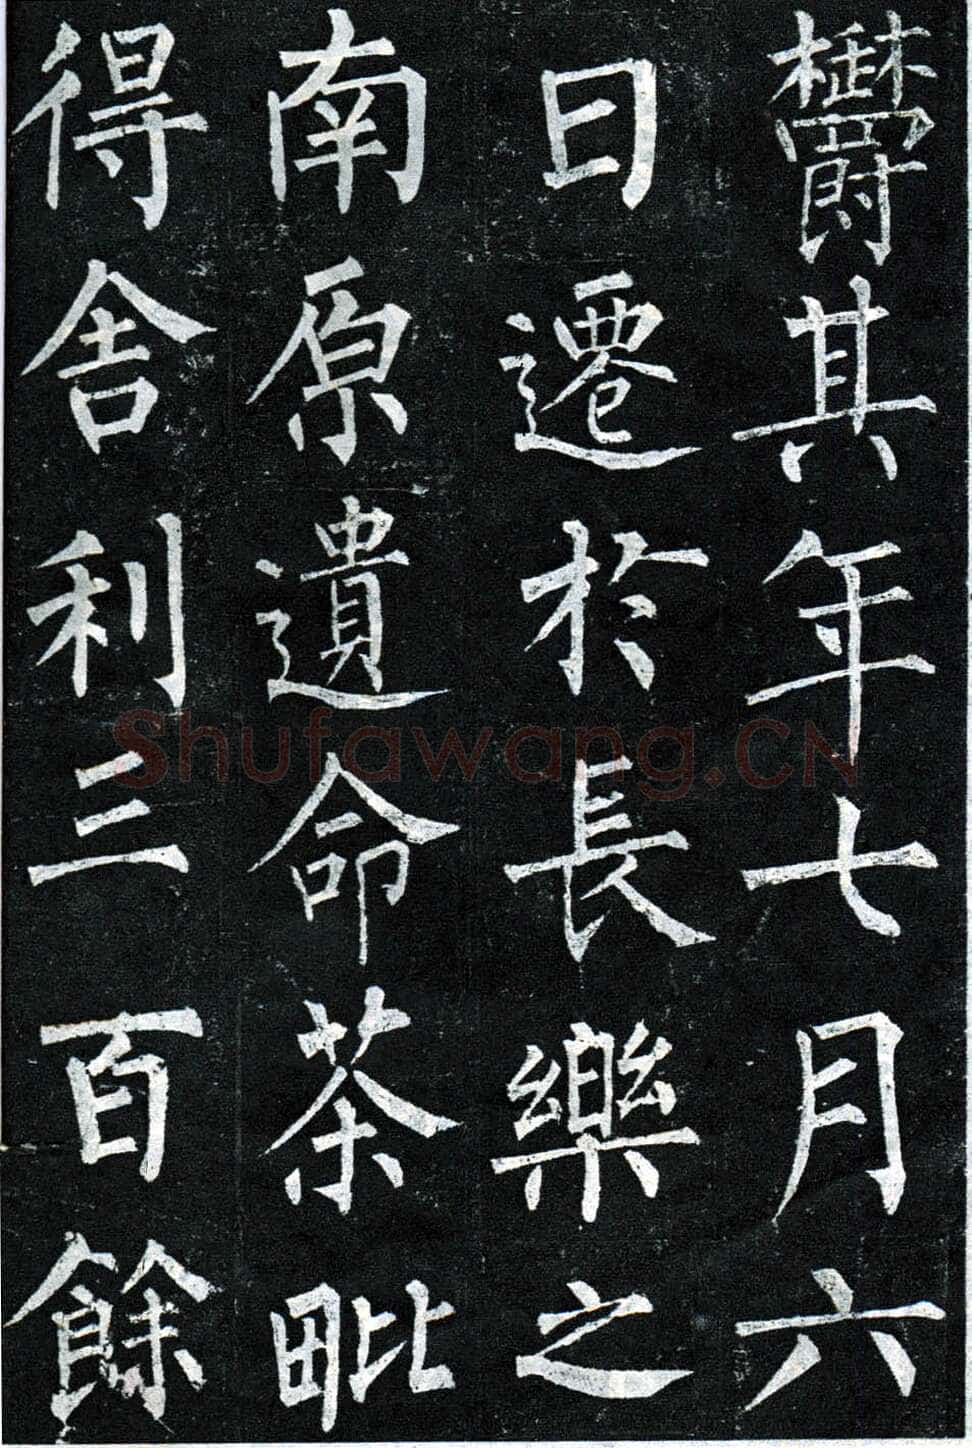 欝其年七月六
日遷於長樂之
南原遺命茶毗
得舍利三百餘
Shufawang.CN